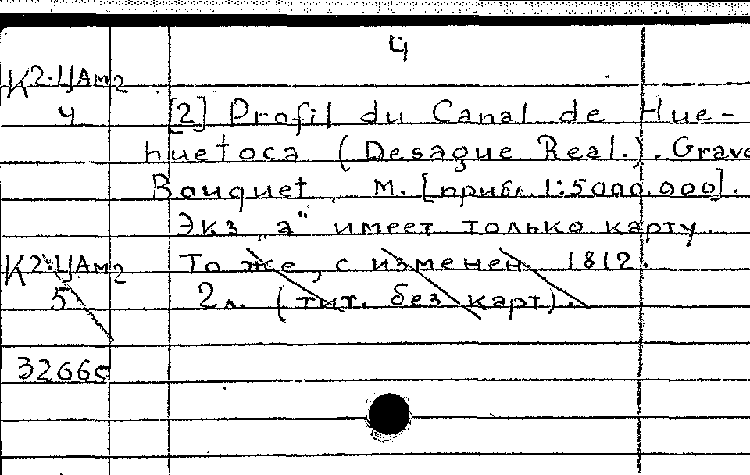 4
К2-ЦАм2
4
[2] Profil du Canal de Hue-
huetoca (Desague Real.). Grave
Bouquet М. [прибл 1:5000.000].
Экз „а" имеет только карту.
К2-ЦАм2
То же, с изменен 1812.
5
2л. (тит. без карт).
32665